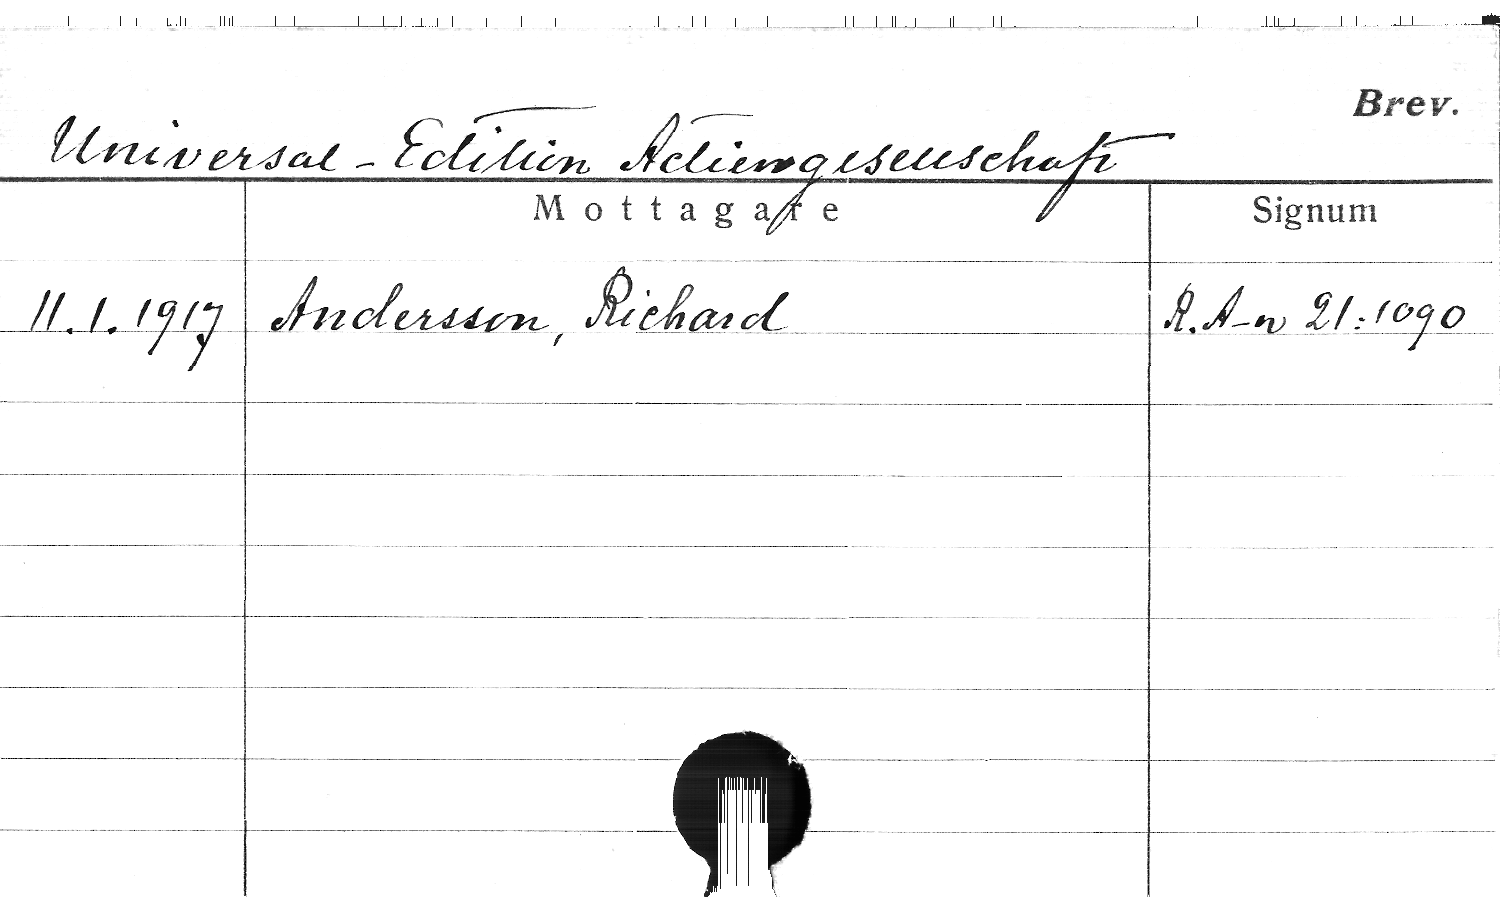 Brev.
Universal-Edition Actiengesellschaft
Mottagare Signum
11.1.1917 Andersson, Richard R. A-n 21:1090